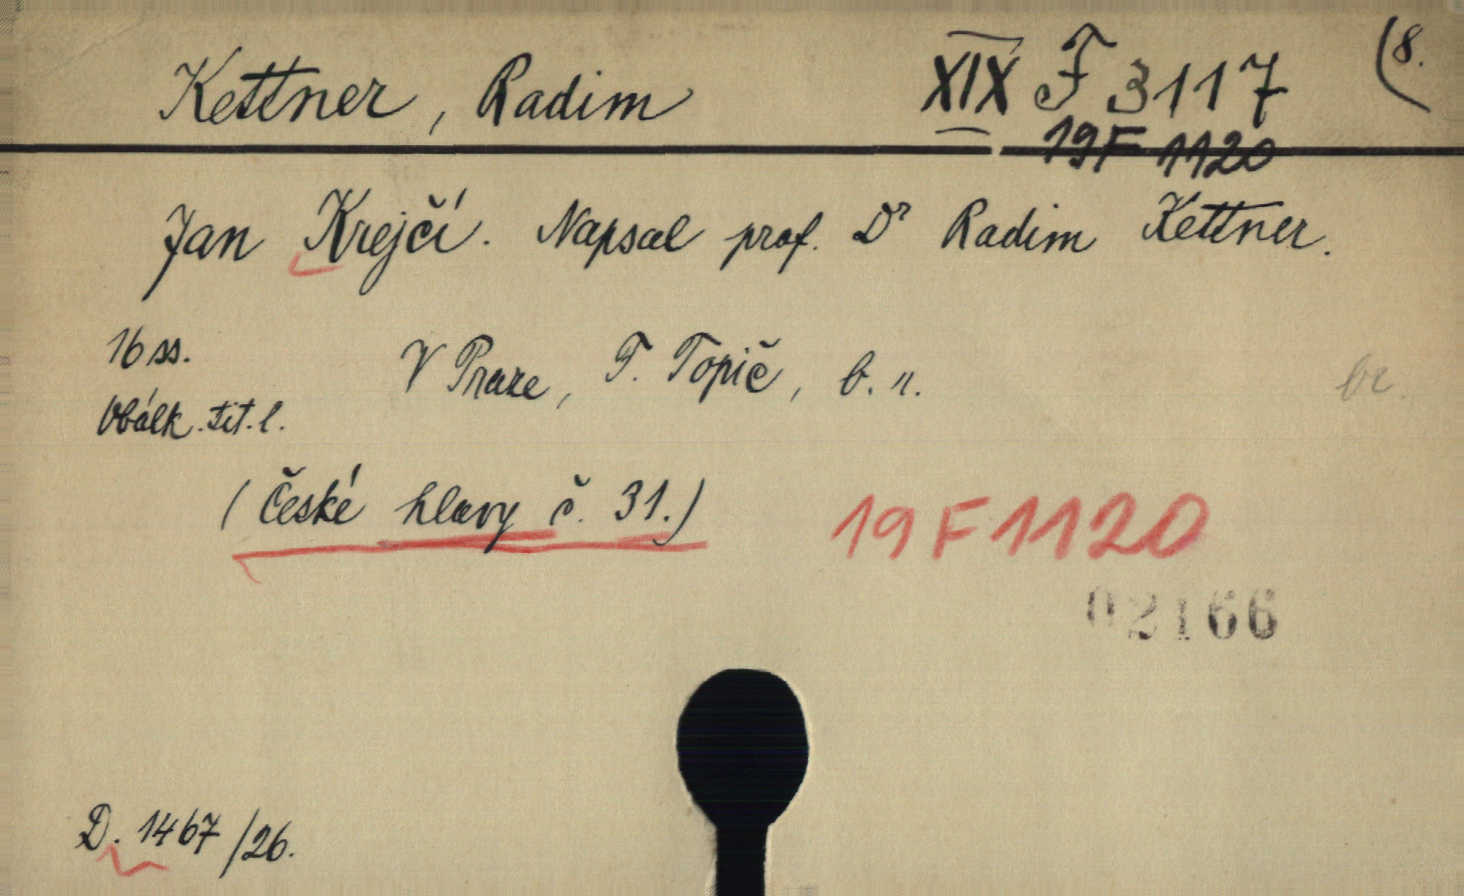 Kettner, Radim XIX F 3117 (8.
19F 1120
Jan Krejčí. Napsal prof. Dr Radim Kettner.
16 ss. V Praze, F. Topič, b. r.
br.
Obálk. tit. l.
(České hlavy č. 31.)
19F1120
02166
D. 1467/26.